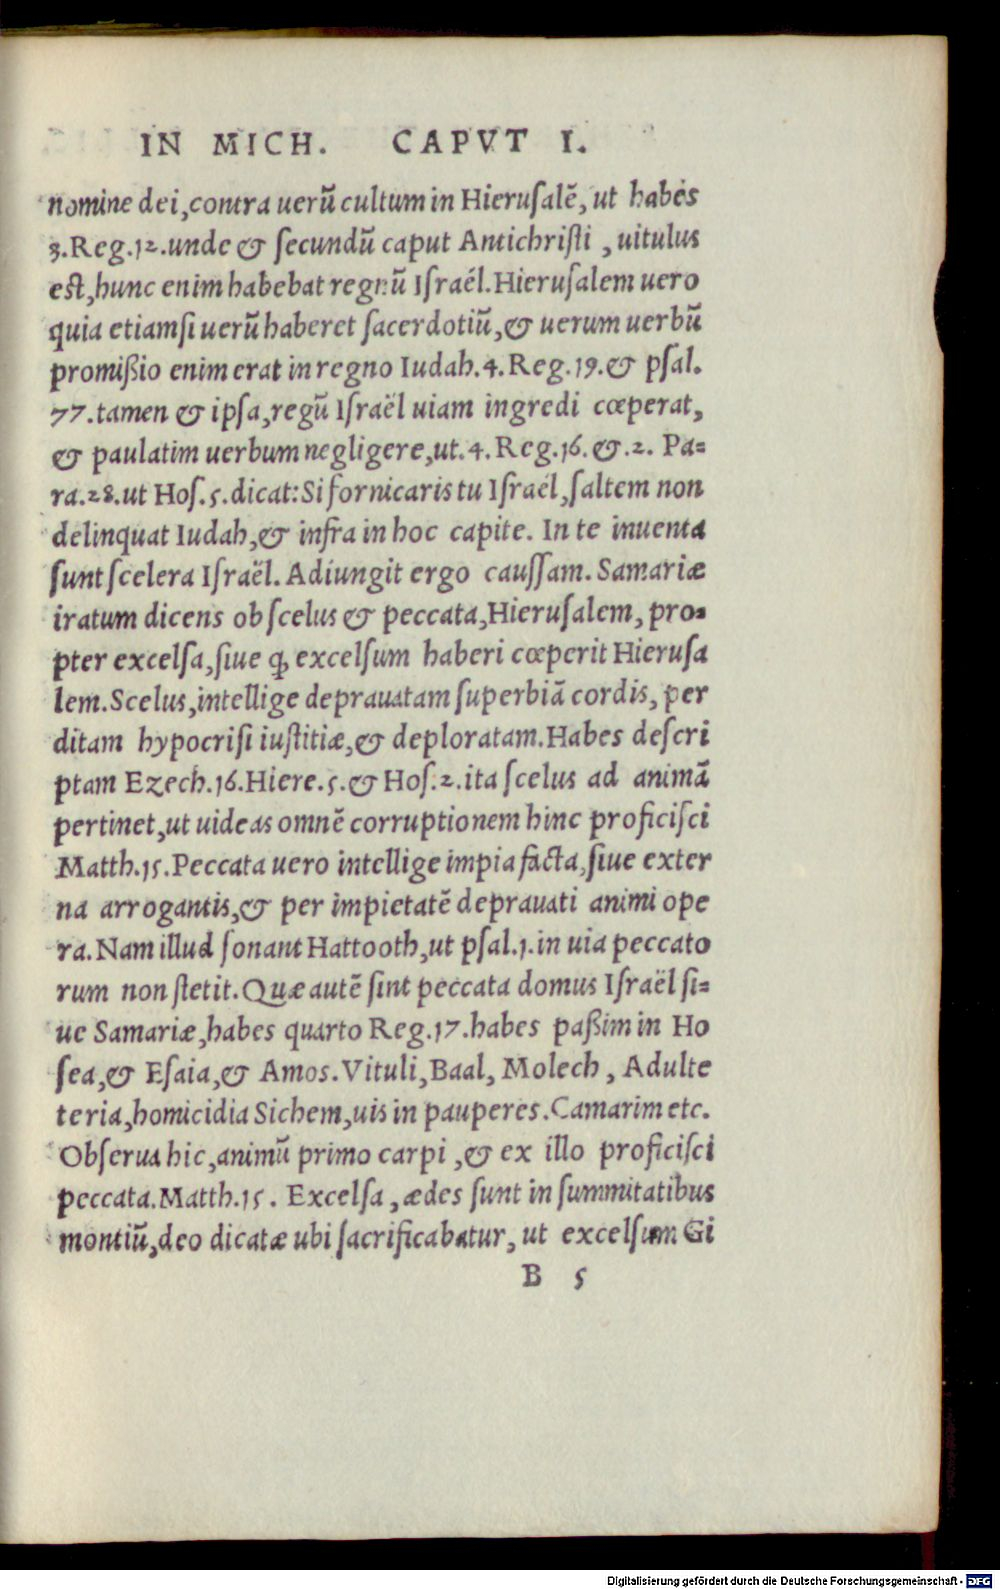 IN MICH. CAPVT I.
nomine dei, contra uerũ cultum in Hieruſalẽ, ut habes
3. Reg. 12. unde & ſecundũ caput Antichriſti, uitulus
est, hunc enim habebat regnũ Iſraél. Hieruſalem uero
quia etiamſi uerũ haberet ſacerdotiũ, & uerum uerbũ
promißio enim erat in regno Iudah. 4. Reg. 19. & pſal.
77. tamen & ipſa, regũ Iſraël uiam ingredi cœperat,
& paulatim uerbum negligere, ut. 4. Reg. 16. &. 2. Pa=
ra. 28. ut Hoſ. 5. dicat: Si fornicaris tu Iſraél, ſaltem non
delinquat Iudah, & infra in hoc capite. In te inuenta
ſunt ſcelera Iſraël. Adiungit ergo cauſſam. Samariæ
iratum dicens ob ſcelus & peccata, Hieruſalem, pro=
pter excelſa, ſiue ꝙ excelſum haberi cœperit Hieruſa
lem. Scelus, intellige deprauatam ſuperbiã cordis, per
ditam hypocriſi iuſtitiæ, & deploratam. Habes deſcri
ptam Ezech. 16. Hiere. 5. & Hoſ. 2. ita ſcelus ad animã
pertinet, ut uideas omnẽ corruptionem hinc proficiſci
Matth. 15. Peccata uero intellige impia facta, ſiue exter
na arrogantis, & per impietatẽ deprauati animi ope
ra. Nam illud ſonant Hattooth, ut pſal. 1. in uia peccato
rum non ſtetit. Quæ autẽ ſint peccata domus Iſraël ſi=
ue Samariæ, habes quarto Reg. 17. habes paßim in Ho
ſea, & Eſaia, & Amos. Vituli, Baal, Molech, Adulte
teria, homicidia Sichem, uis in pauperes. Camarim etc.
Obſerua hic, animũ primo carpi, & ex illo proficiſci
peccata. Matth. 15. Excelſa, ædes ſunt in ſummitatibus
montiũ, deo dicatæ ubi ſacrificabatur, ut excelſum Gi
B 5
Digitalisierung gefördert durch die Deutsche Forschungsgemeinschaft - DFG